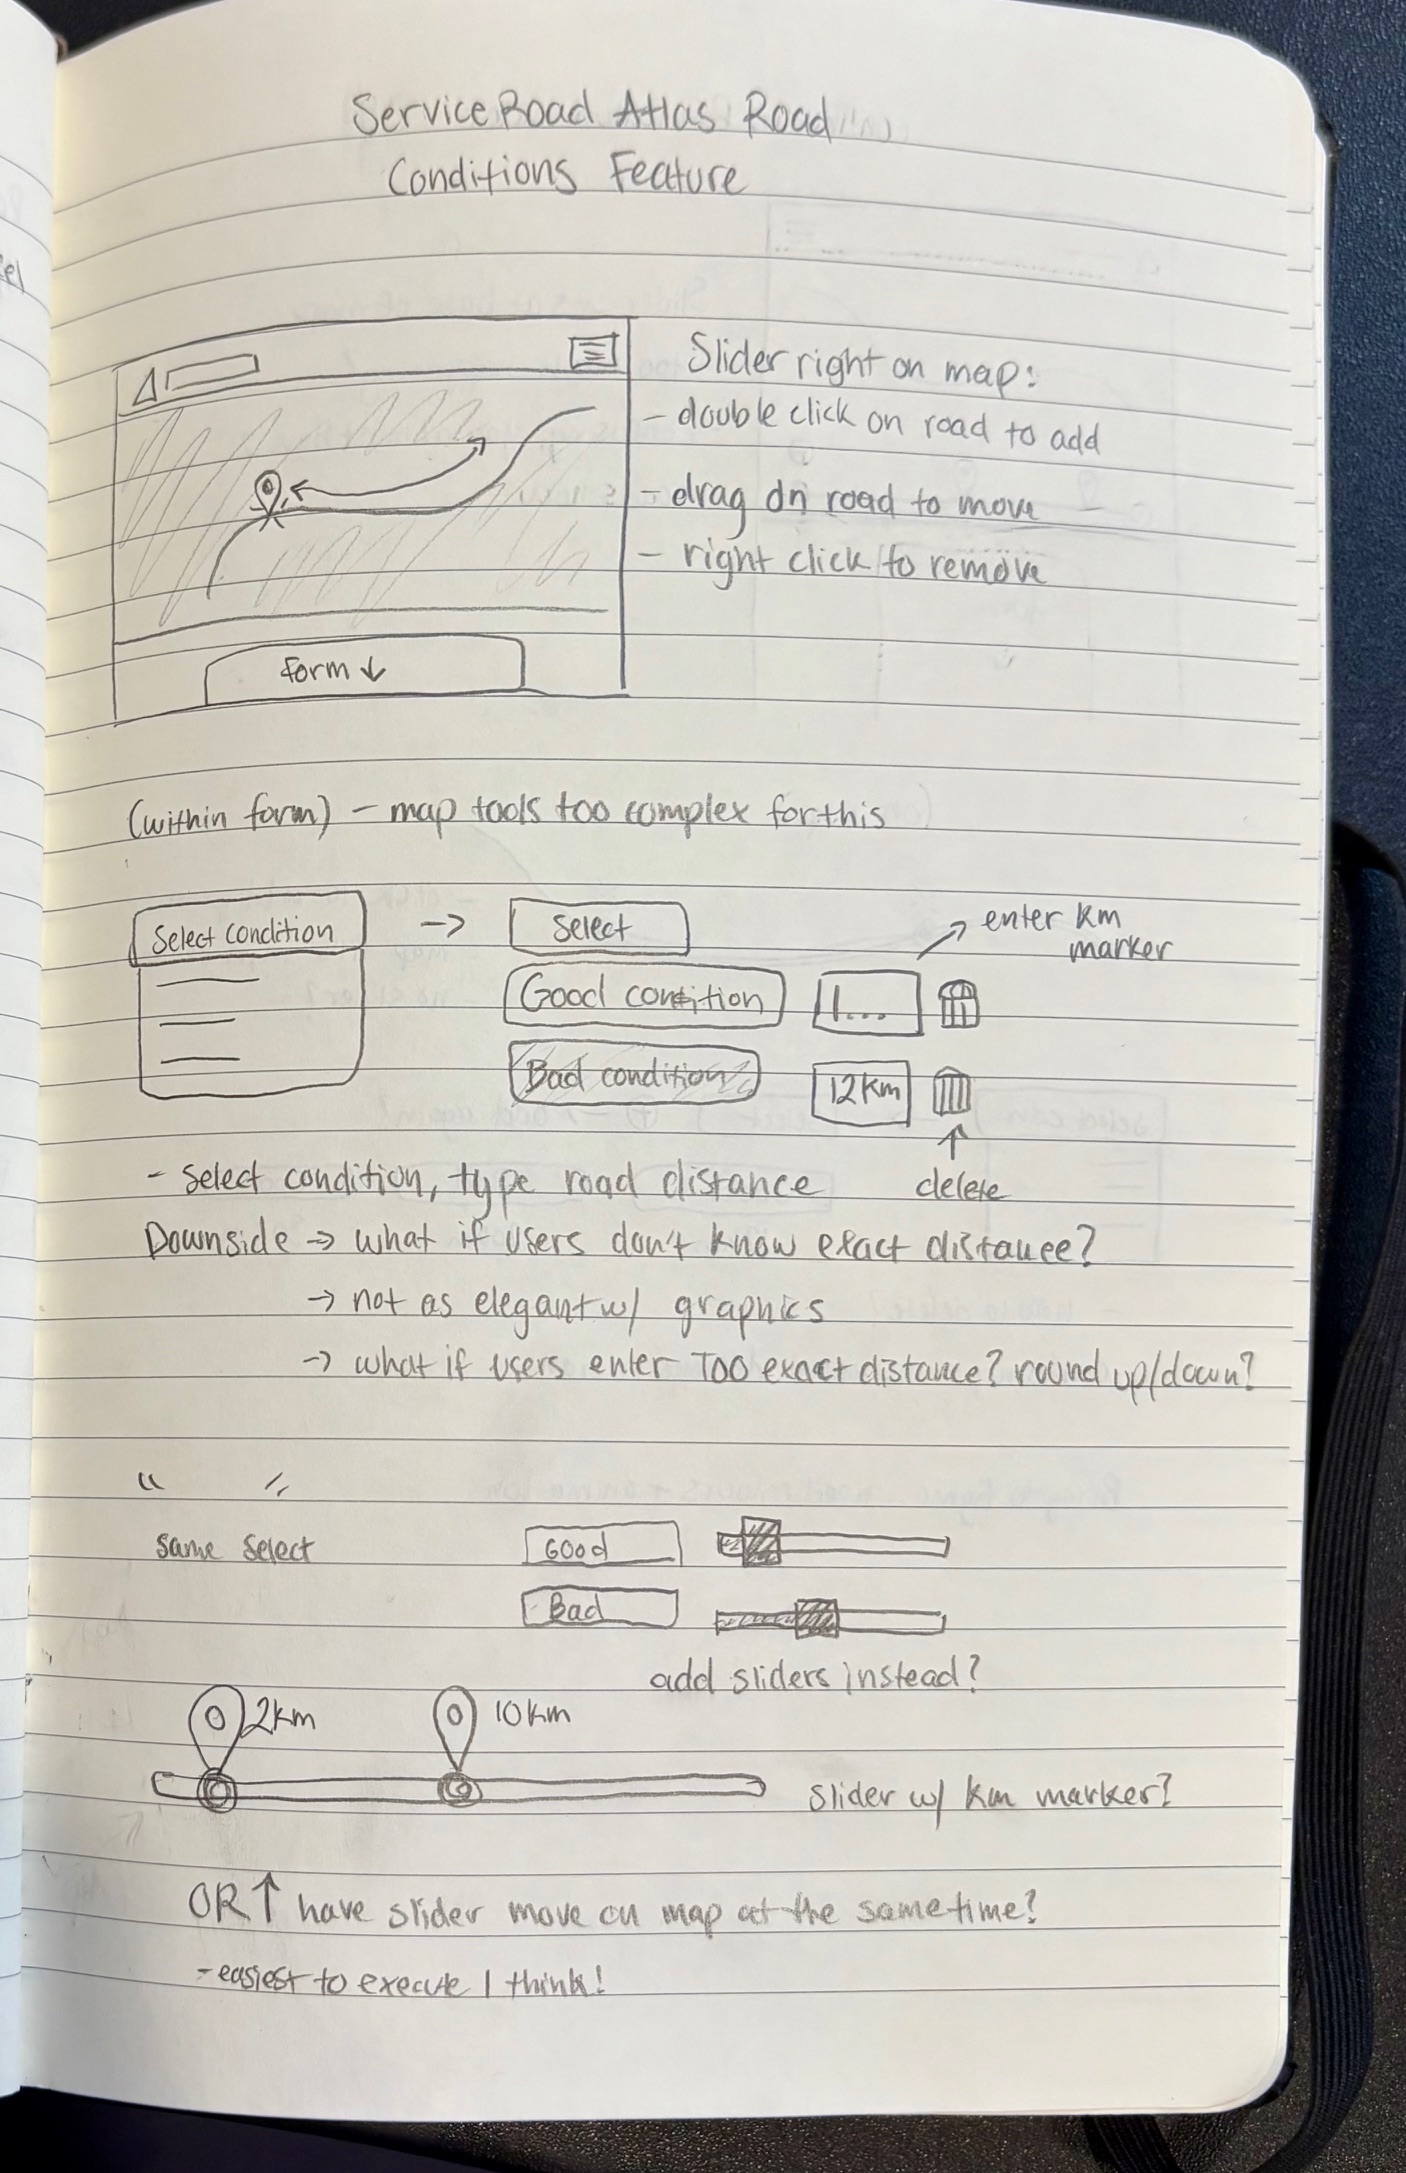 Service Road Atlas Road
Conditions Feature
Slider right on map:
- double click on road to add
- drag on road to move
- right click to remove
form ↓
(within form) - map tools too complex for this
Select condition
→
Select
→ enter km
marker
Good condition
|...
Bad condition
12km
↑
delete
- Select condition, type road distance
Downside → what if users don't know exact distance?
→ not as elegant w/ graphics
→ what if users enter TOO exact distance? round up/down?
" "
same select
Good
Bad
add sliders instead?
2km
10km
slider w/ km marker?
OR ↑ have slider move on map at the same time?
- easiest to execute I think!